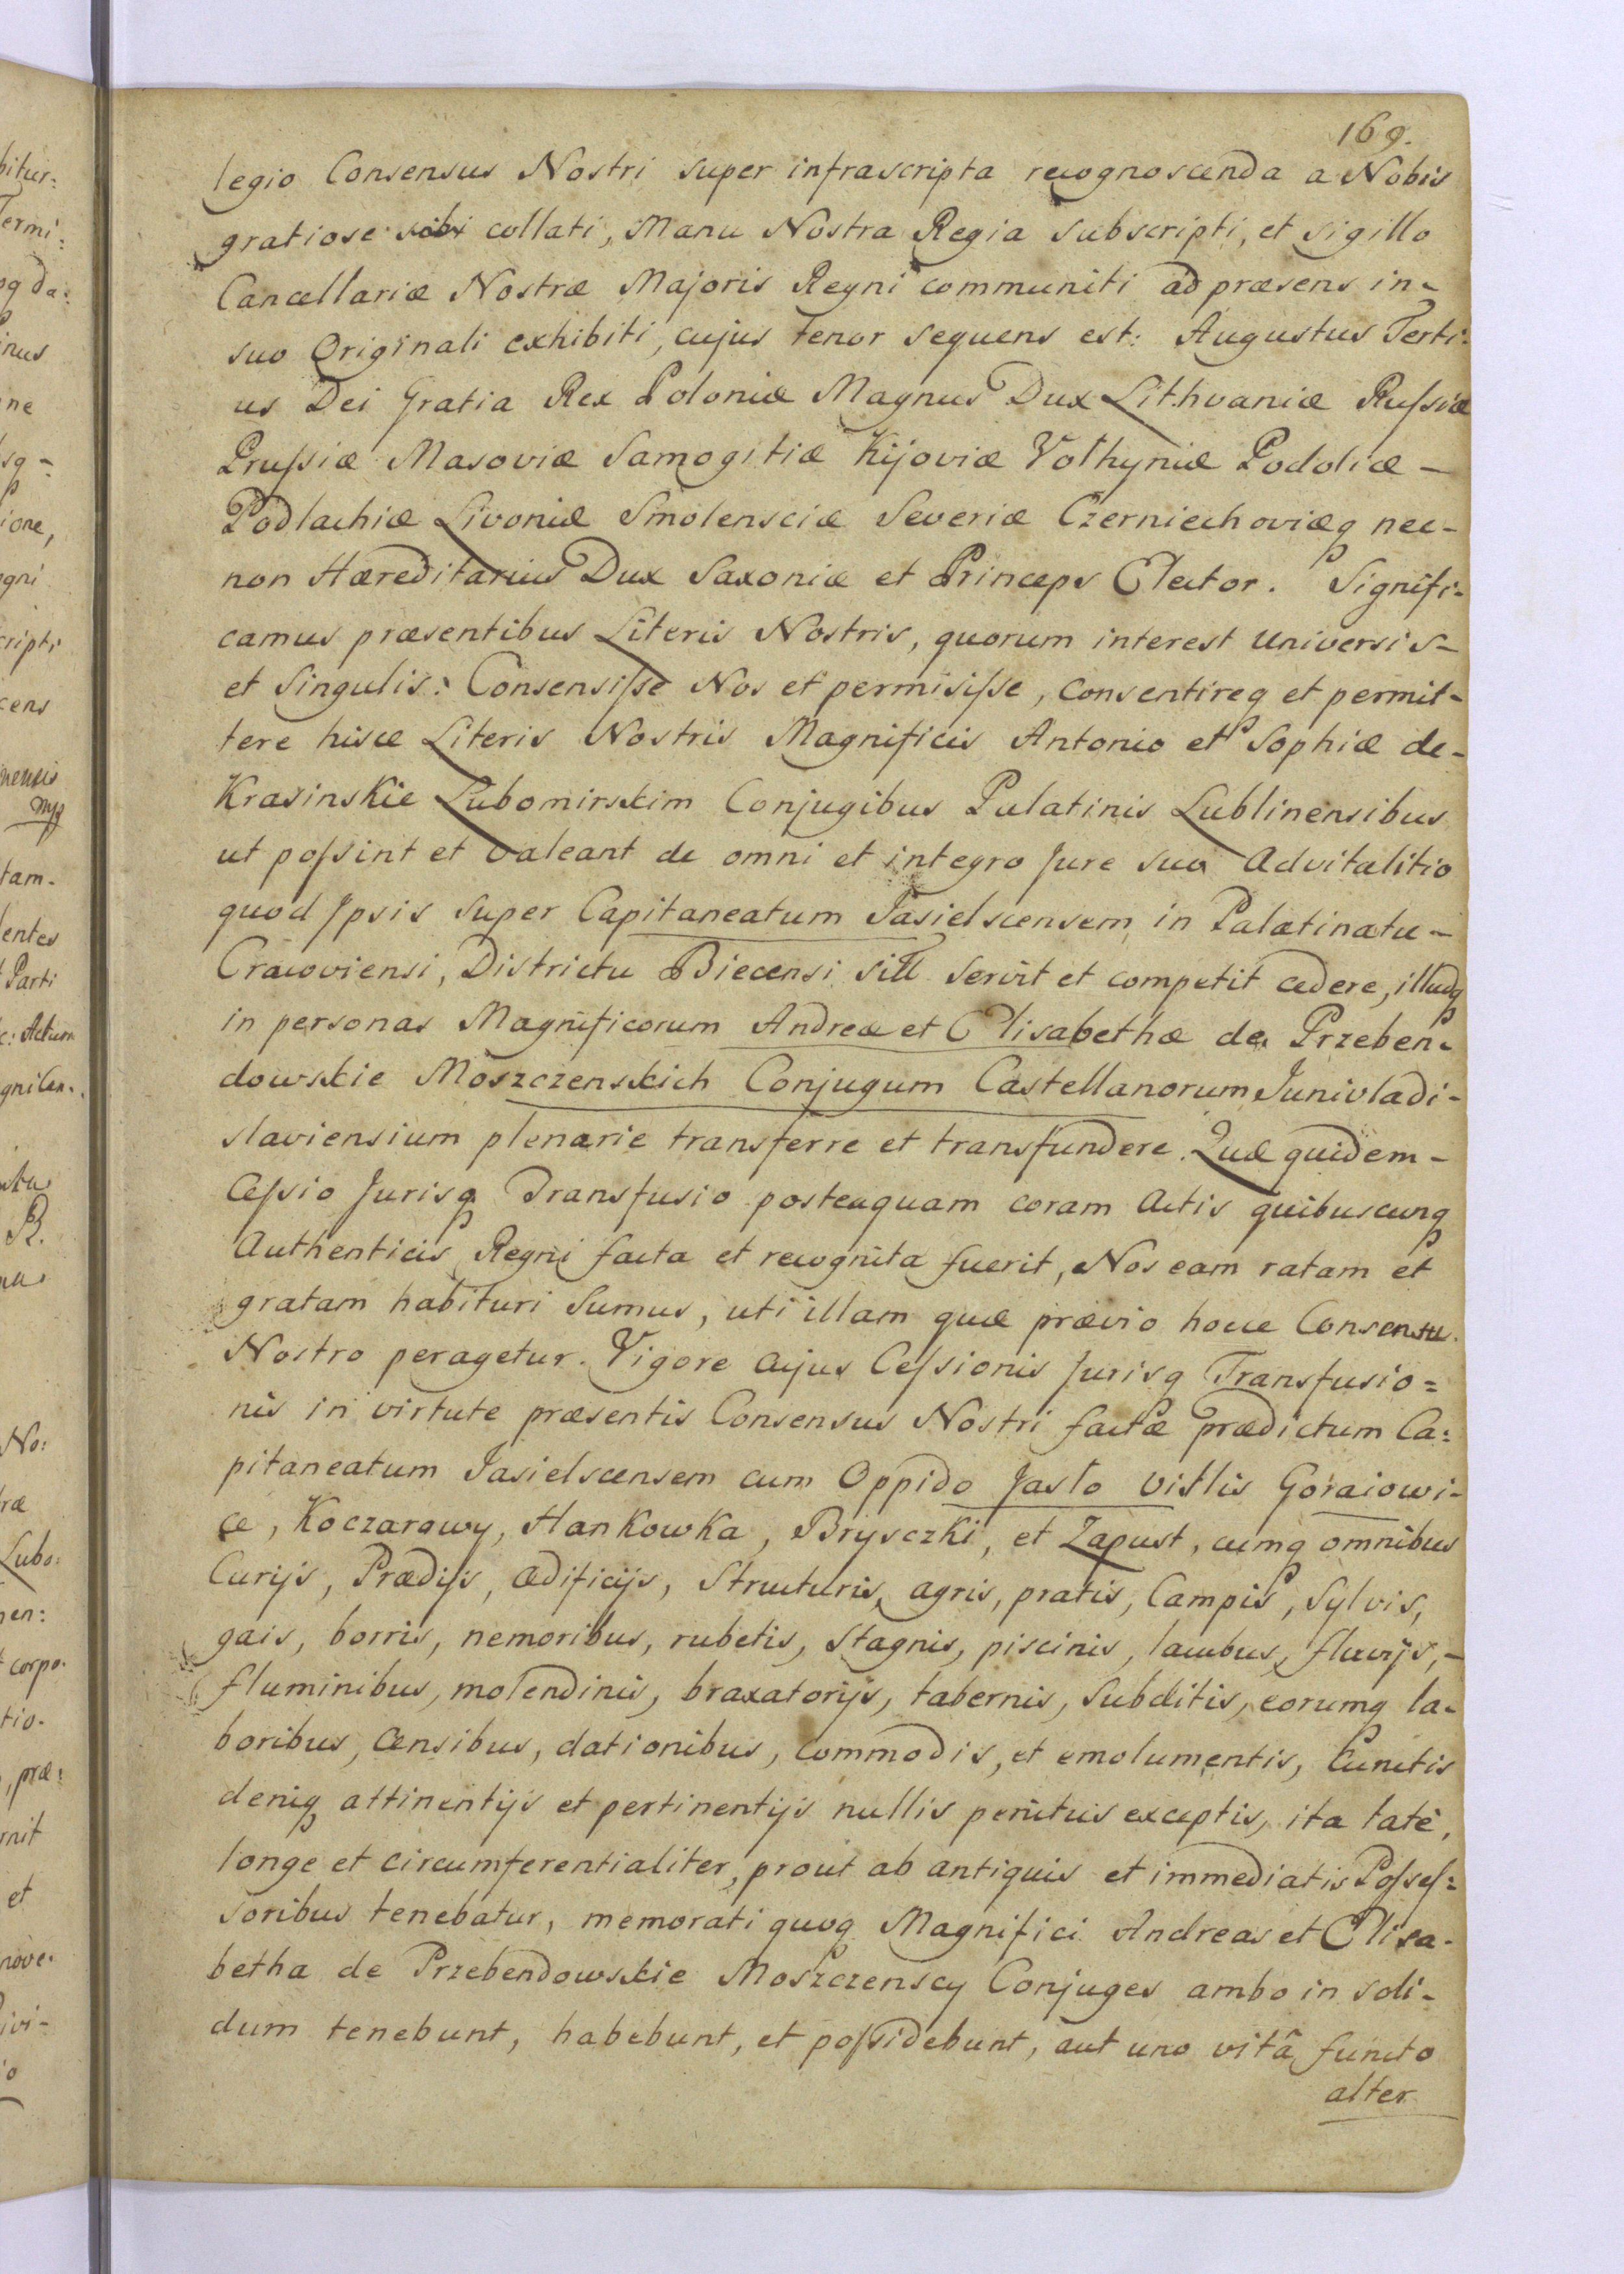 169.
legio Consensus Nostri super infrascripta recognoscenda a Nobis
gratiose sibi collati, Manu Nostra Regia subscripti, et sigillo
Cancellariæ Nostræ Majoris Regni communiti ad præsens in-
suo Originali exhibiti, cujus tenor sequens est: Augustus Terti:
us Dei Gratia Rex Poloniæ Magnus Dux Lithvaniæ Ruſsiæ
Pruſsiæ Masoviæ Samogitiæ Kijoviæ Volhyniæ Podoliæ -
Podlachiæ Livoniæ Smolensciæ Severiæ Czerniechoviæq nec-
non Hæreditarius Dux Saxoniæ et Princeps Elector. Signifi-
camus præsentibus Literis Nostris, quorum interest Universis-
et Singulis: Consensiſse Nos et permisiſse, Consentireq et permit-
tere hisce Literis Nostris Magnificis Antonio et Sophiæ de-
Krasinskie Lubomirskim Conjugibus Palatinis Lublinensibus
ut poſsint et valeant de omni et integro Jure suo Advitalitio
quod Ipsis super Capitaneatum Jasielscensem in Palatinatu -
Cracoviensi, Districtu Biecensi sitt servit et competit cedere, illudq
in personas Magnificorum Andreæ et Elisabethæ de Przeben-
dowskie Moszczenskich Conjugum Castellanorum Junivladi-
slaviensium plenarie transferre et transfundere. Quæ quidem -
Ceſsio Jurisq Transfusio posteaquam coram Actis quibuscunq
Authenticis Regni facta et recognita fuerit, Nos eam ratam et
gratam habituri Sumus, uti illam quæ prævio hocce Consensu
Nostro peragetur. Vigore cujus Ceſsionis Jurisq Transfusio=
nis in virtute præsentis Consensus Nostri factæ prædictum Ca:
pitaneatum Jasielscensem cum Oppido Jasło villis Goraiowi-
ce, Koczarawy, Hankowka, Brysczki, et Zapust, cumq omnibus
Curijs, Prædijs, ædificijs, Structuris, agris, pratis, Campis, Sylvis,
gais, borris, nemoribus, rubetis, Stagnis, piscinis, lacubus, fluvijs, -
fluminibus, molendinis, braxatorijs, tabernis, Subditis, eorumq la-
boribus, Censibus, dationibus, commodis, et emolumentis, Cunctis
deniq attinentijs et pertinentijs nullis penitus exceptis, ita late,
longe et circumferentialiter, prout ab antiquis et immediatis Poſseſ:
soribus tenebatur, memorati quoq Magnifici Andreas et Elisa-
betha de Przebendowskie Moszczenscy Conjuges ambo in soli-
dum tenebunt, habebunt, et poſsidebunt, aut uno vitâ functo
alter